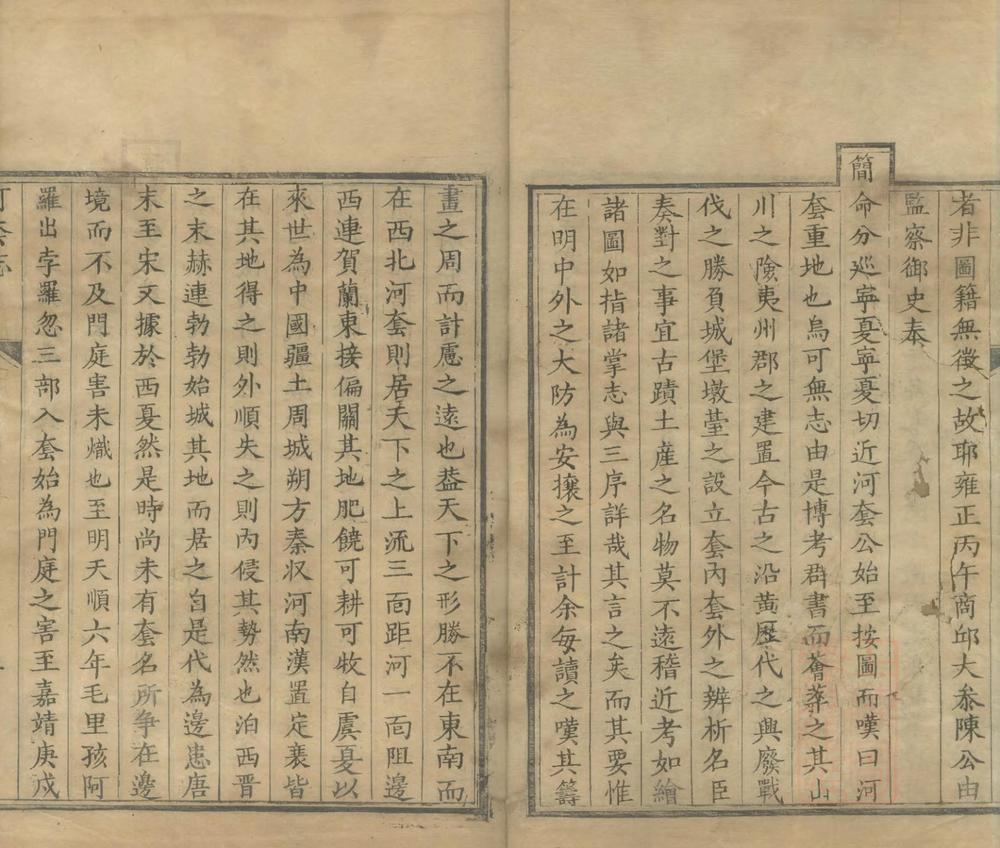 者非圖籍無徵之故耶雍正丙午商邱大叅陳公由
監察御史奉
簡命分巡寧夏寧夏切近河套公始至按圖而嘆曰河
套重地也烏可無志由是博考群書而薈蕞之其山
川之險夷州郡之建置今古之沿革歷代之興廢戰
伐之勝負城堡墩臺之設立套內套外之辨析名臣
奏對之事宜古蹟土産之名物莫不遠稽近考如繪
諸圖如指諸掌志與三序詳哉其言之矣而其要惟
在明中外之大防為安攘之至計余每讀之嘆其籌
畫之周而計慮之遠也葢天下之形勝不在東南而
在西北河套則居天下之上流三面距河一面阻邊
西連賀蘭東接偏關其地肥饒可耕可牧自虞夏以
來世為中國疆土周城朔方秦収河南漢置定襄皆
在其地得之則外順失之則內侵其勢然也洎西晋
之末赫連勃勃始城其地而居之自是代為邊患唐
末至宋又據於西夏然是時尚未有套名所爭在邊
境而不及門庭害未熾也至明天順六年毛里孩阿
羅出孛羅忽三部入套始為門庭之害至嘉靖庚戌
河套志